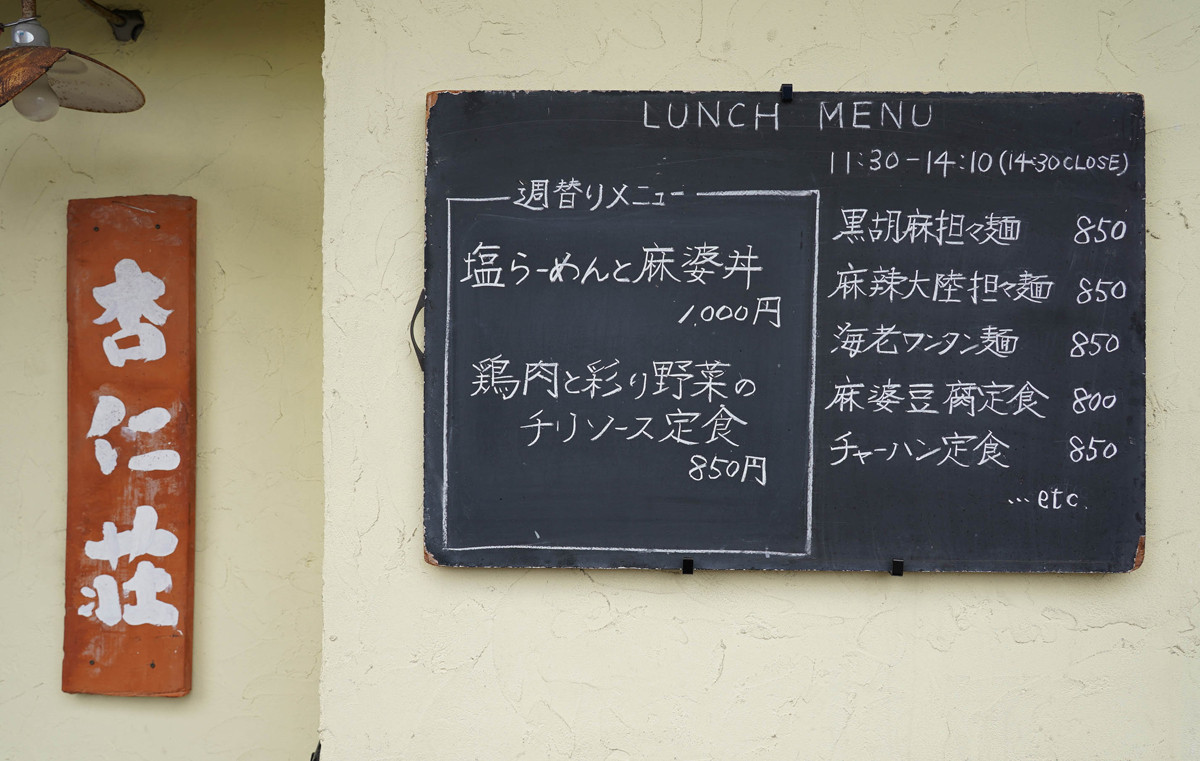 杏仁荘
LUNCH MENU
11:30-14:10(14:30CLOSE)
週替りメニュー
塩らーめんと麻婆丼
1,000円
鶏肉と彩り野菜の
チリソース定食
850円
黒胡麻担々麺 850
麻辣大陸担々麺 850
海老ワンタン麺 850
麻婆豆腐定食 800
チャーハン定食 850
…etc.